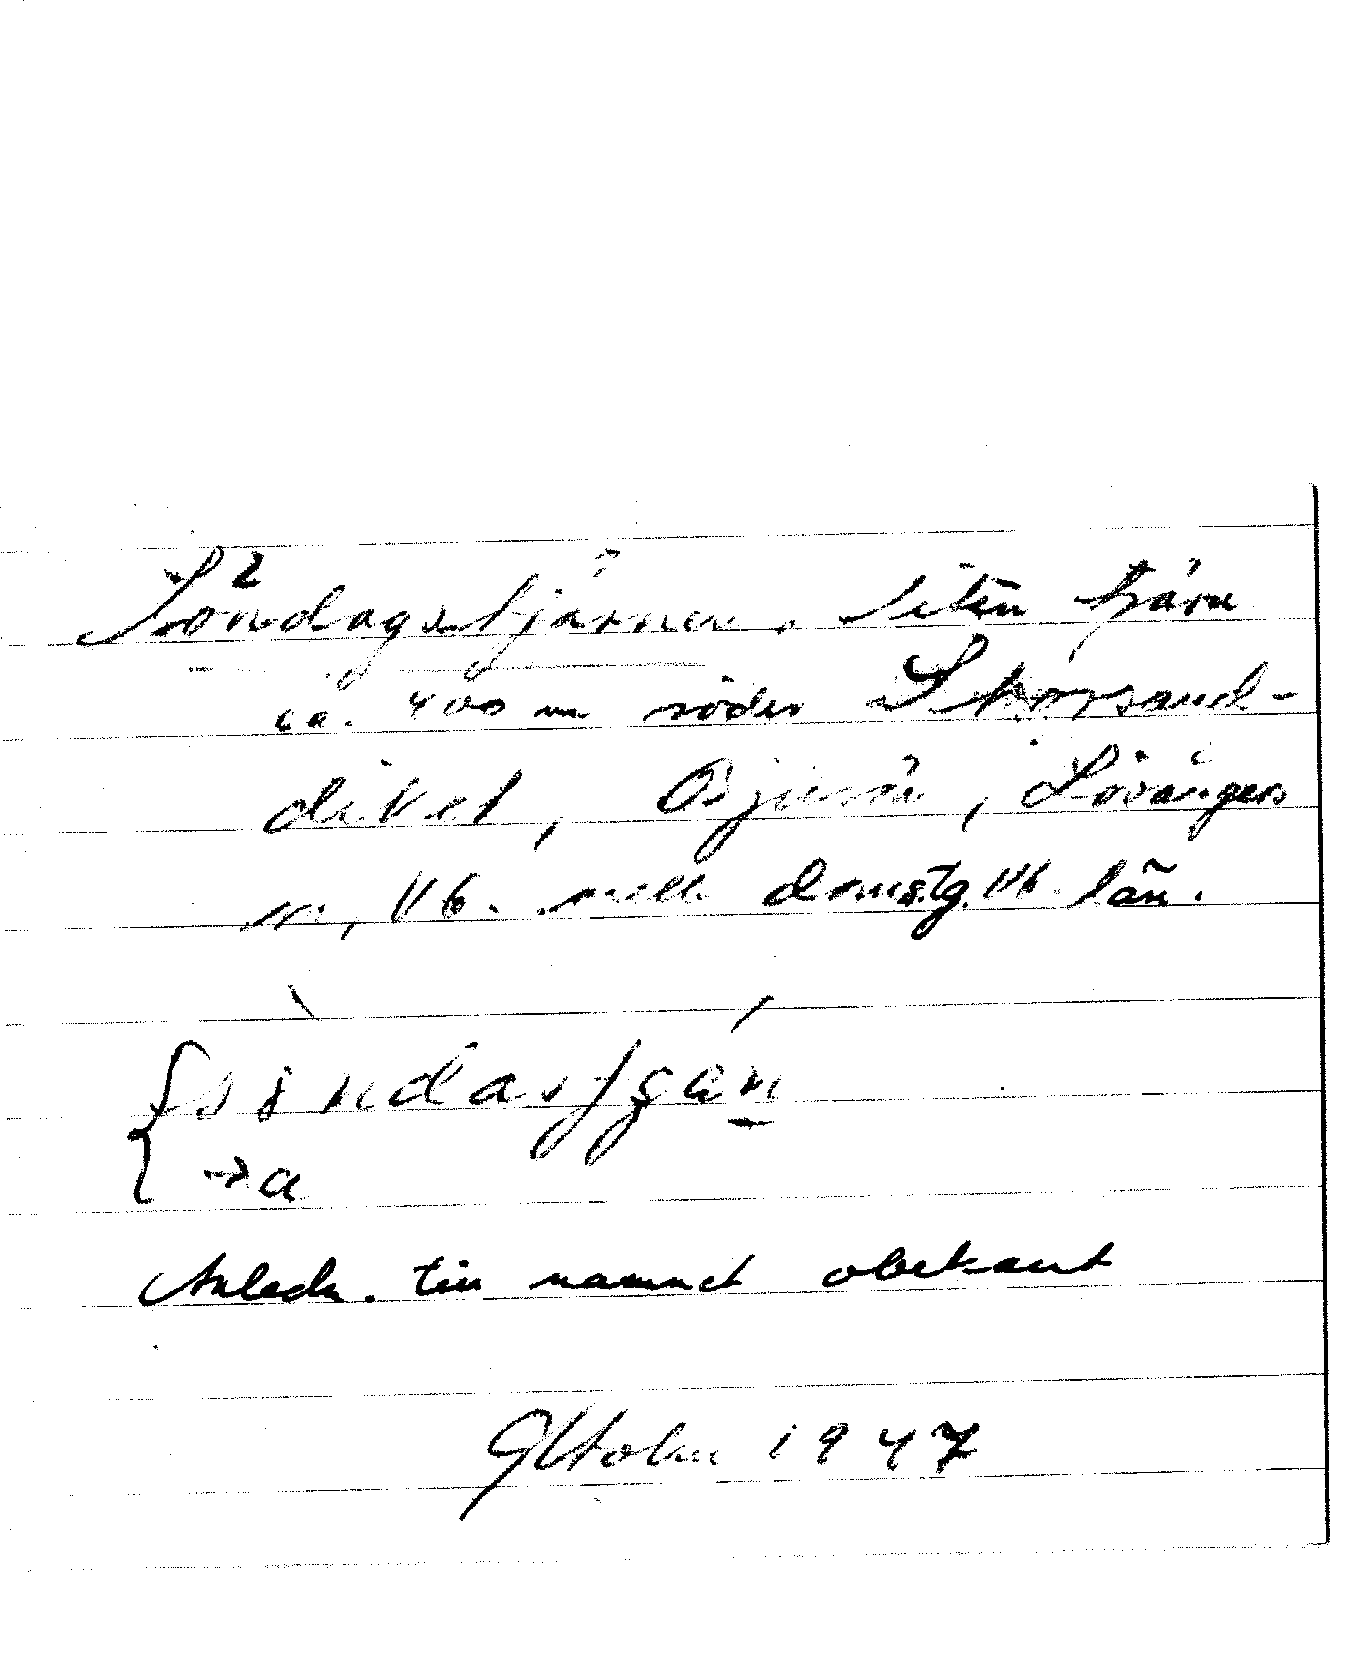 2
Söndagstjärnen. Liten tjärn
ca. 400 m söder Skorsand-
diket, Bjurön, Lövångers
sn, Vb. mell. domstg. Vb. län.
söndasʃgän
→a
Anledn. till namnet obekant
OHolm 1947